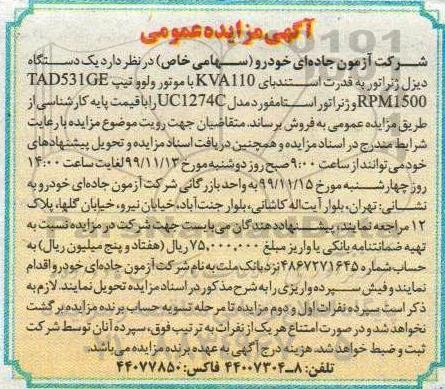 آگهی مزایده عمومی
شرکت آزمون جاده‌ای خودرو (سهامی خاص) در نظر دارد یک دستگاه
دیزل ژنراتور به قدرت استندبای KVA110 با موتور ولوو تیپ TAD531GE
RPM1500 و ژنراتور استامفورد مدل UC1274C را با قیمت پایه کارشناسی از
طریق مزایده عمومی به فروش برساند. متقاضیان جهت رویت موضوع مزایده با رعایت
شرایط مندرج در اسناد مزایده و همچنین دریافت اسناد مزایده و تحویل پیشنهادهای
خود می‌توانند از ساعت ۹:۰۰ صبح روز دوشنبه مورخ ۹۹/۱۱/۱۳ لغایت ساعت ۱۴:۰۰
روز چهارشنبه مورخ ۹۹/۱۱/۱۵ به واحد بازرگانی شرکت آزمون جاده‌ای خودرو به
نشانی: تهران، بلوار آیت‌اله کاشانی، بلوار جنت‌آباد، خیابان نیرو، خیابان گلها، پلاک
۱۲ مراجعه نمایند، پیشنهاددهندگان می‌بایست جهت شرکت در مزایده نسبت به
تهیه ضمانتنامه بانکی یا واریز مبلغ ۷۵,۰۰۰,۰۰۰ ریال (هفتاد و پنج میلیون ریال) به
حساب شماره ۴۸۶۷۲۷۱۶۴۵ نزد بانک ملت به نام شرکت آزمون جاده‌ای خودرو اقدام
نمایند و فیش سپرده واریزی را به شرح مذکور در اسناد مزایده تحویل نمایند. لازم به
ذکر است سپرده نفرات اول و دوم مزایده تا مرحله تسویه حساب برنده مزایده برگشت
نخواهد شد و در صورت امتناع هر یک از نفرات به ترتیب فوق، سپرده آنان توسط شرکت
ثبت و ضبط خواهد شد. هزینه درج آگهی به عهده برنده مزایده می‌باشد.
تلفن: ۸-۴۴۰۰۷۳۰۴ فاکس: ۴۴۰۷۷۸۵۰